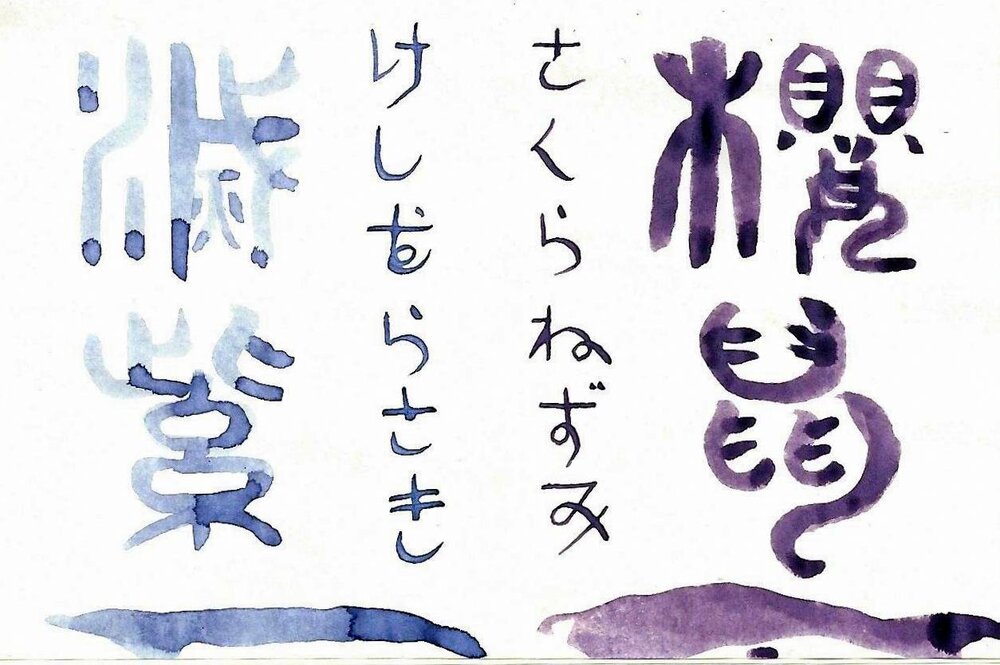 櫻鼠
さくらねずみ
けしむらさき
滅紫